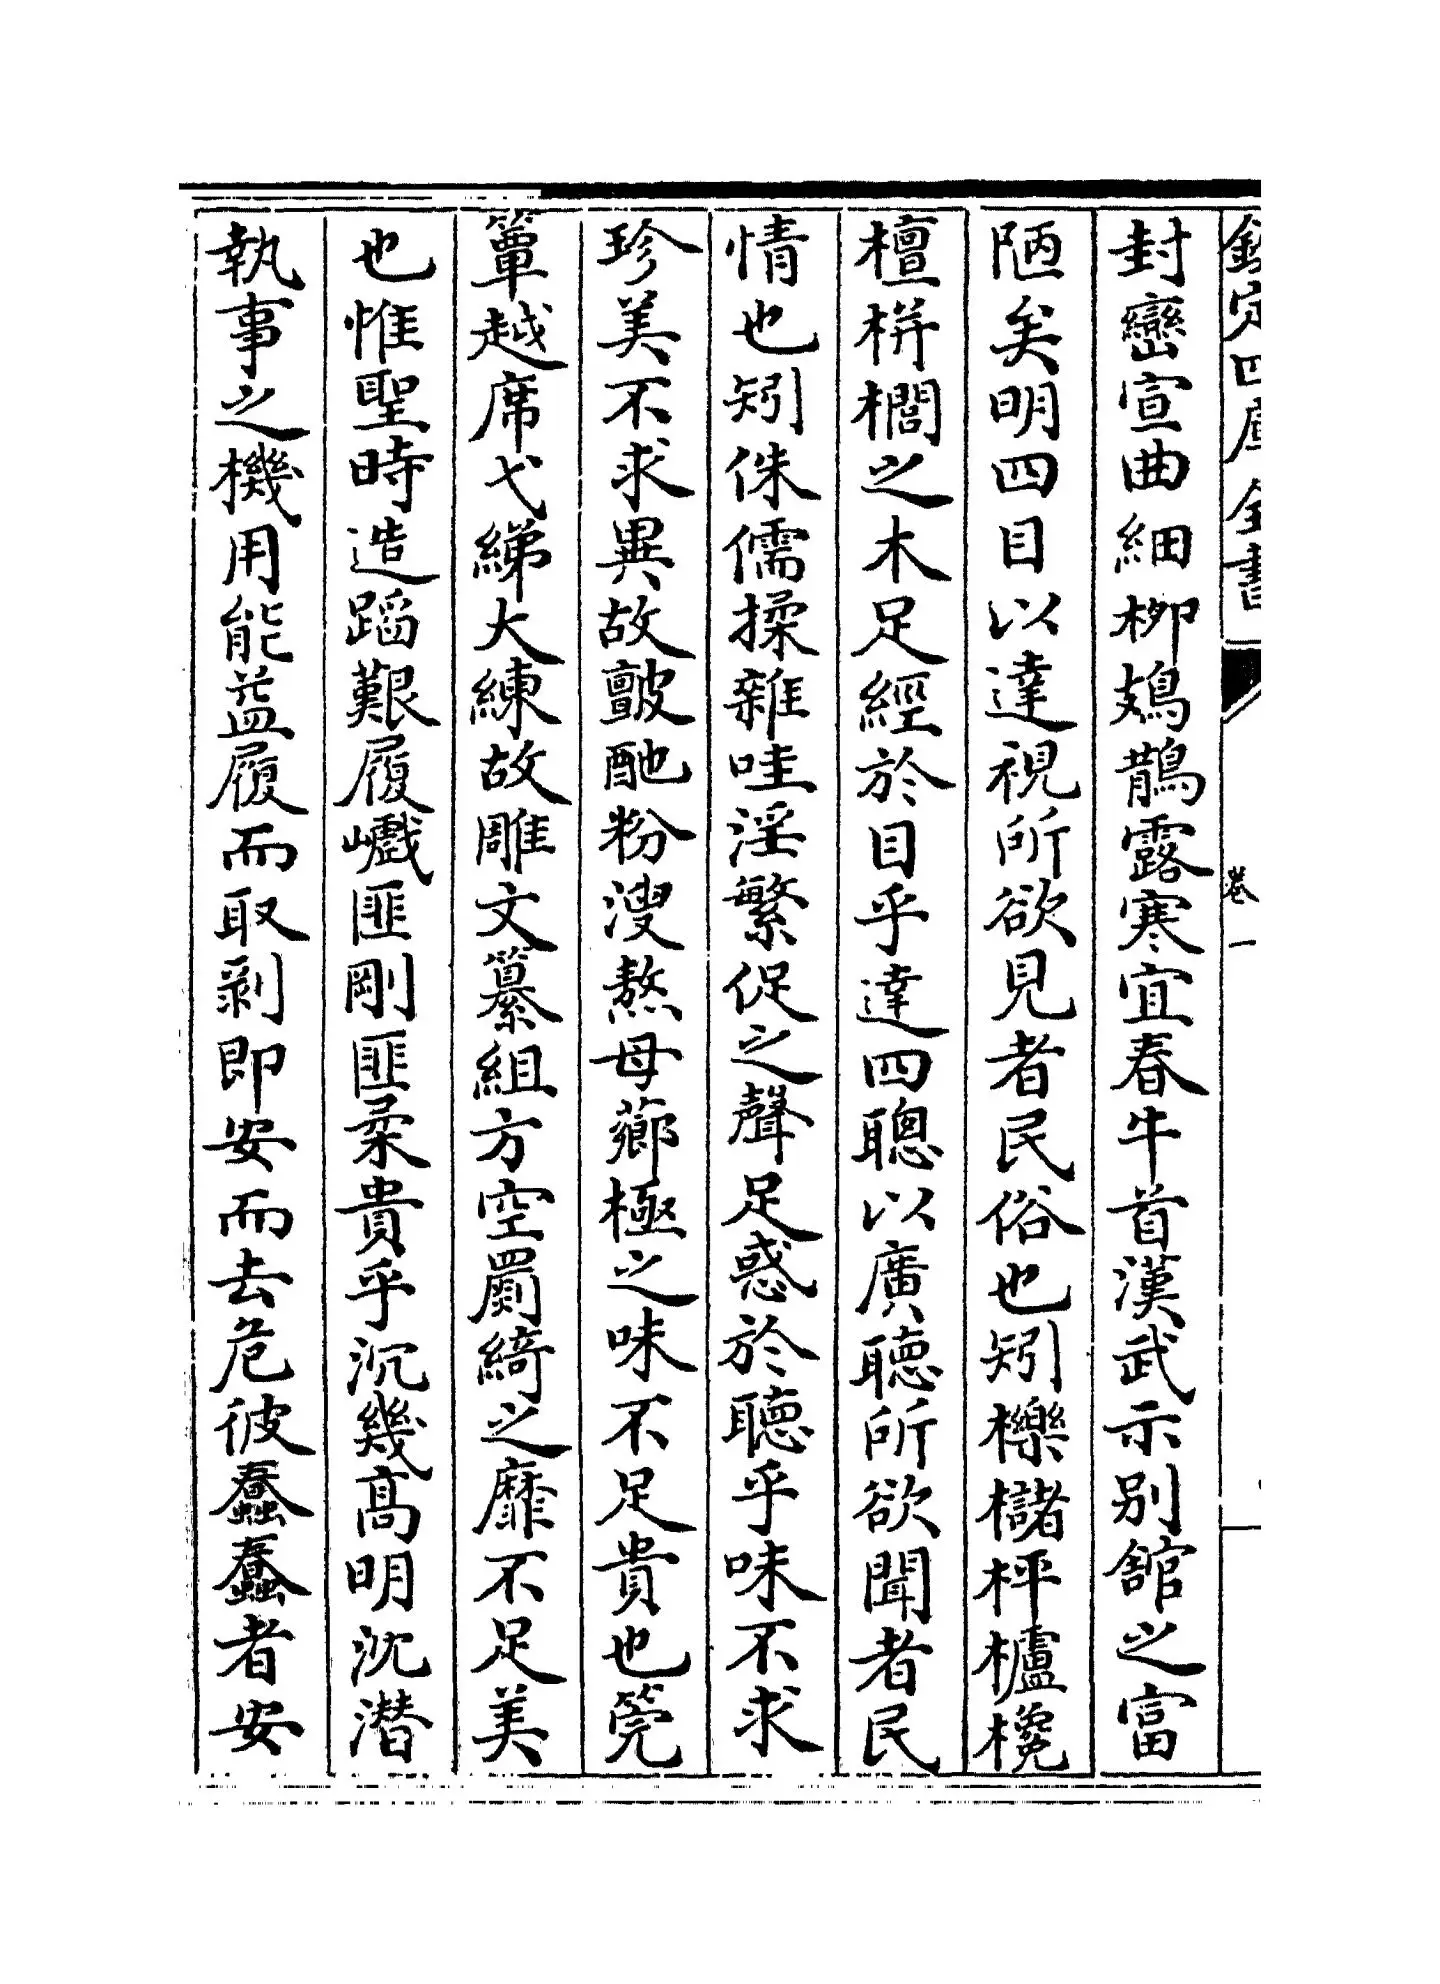 欽定四庫全書
卷一
封巒宣曲細栁鳷鵲露寒宜春牛首漢武示别館之富
陋矣明四目以達視所欲見者民俗也矧櫟櫧枰櫨欃
檀栟櫚之木足經於目乎達四聰以廣聽所欲聞者民
情也矧侏儒揉雜哇淫繁促之聲足惑於聽乎味不求
珍美不求異故皽酏粉溲熬母薌極之味不足貴也筦
簟越席弋綈大練故雕文纂組方空罽綺之靡不足美
也惟聖時造蹈艱履巇匪剛匪柔貴乎沉幾高明沈潛
執事之機用能葢履而取剝即安而去危彼蠢蠢者安